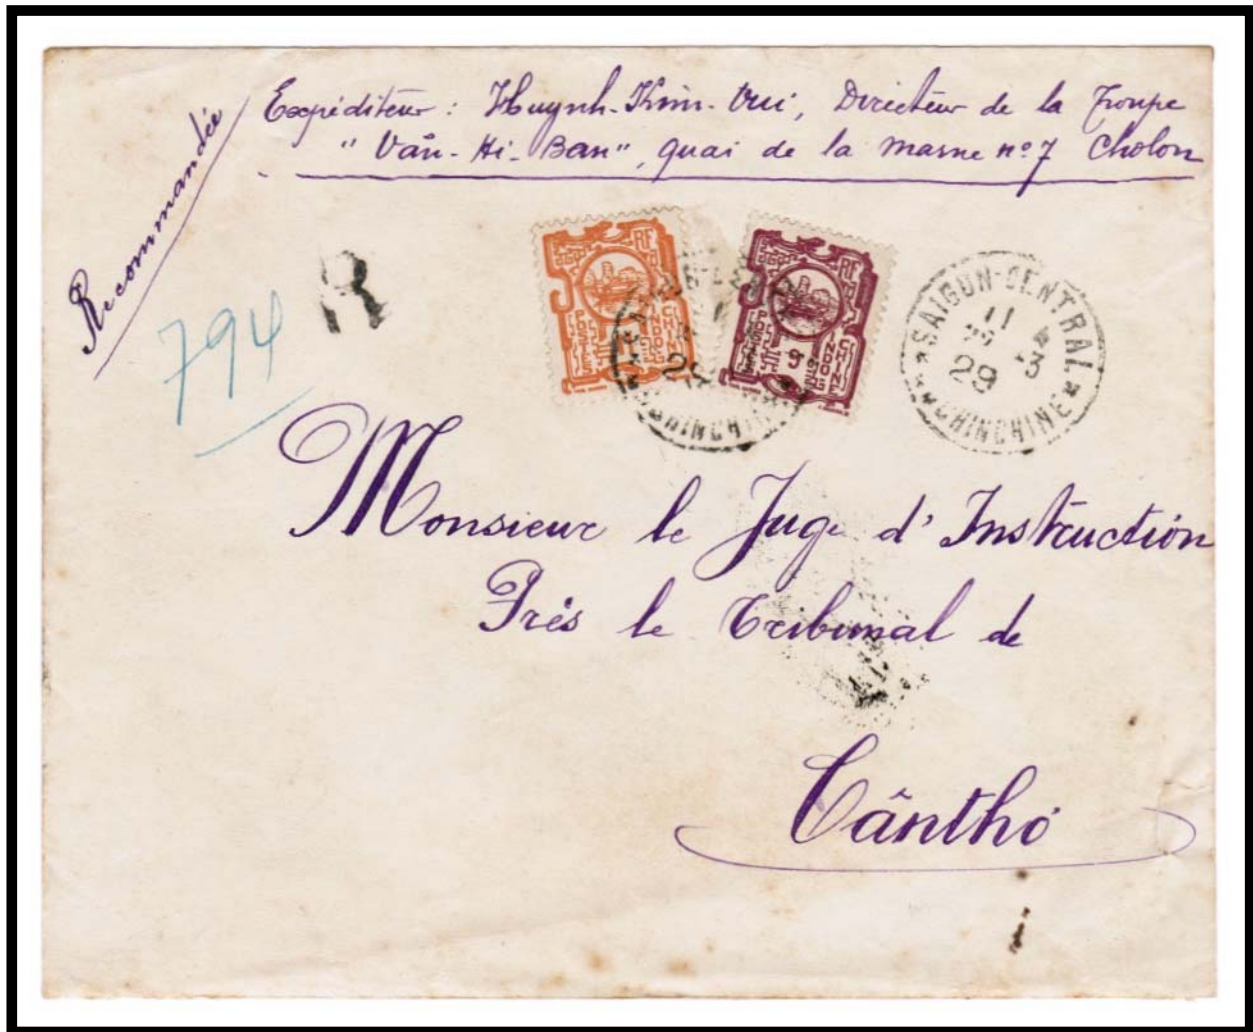 Recommandée
Expéditeur : Huynh-Kim-Vui, Directeur de la Troupe
"Vân-Hi-Ban", quai de la marne nº 7 Cholon
794 R
RF RF
POSTES INDO CHINE POSTES INDO CHINE
SAIGON-CENTRAL
11
-3
29
CHINCHINE
Monsieur le Juge d'Instruction
Près le Tribunal de
Cânthó